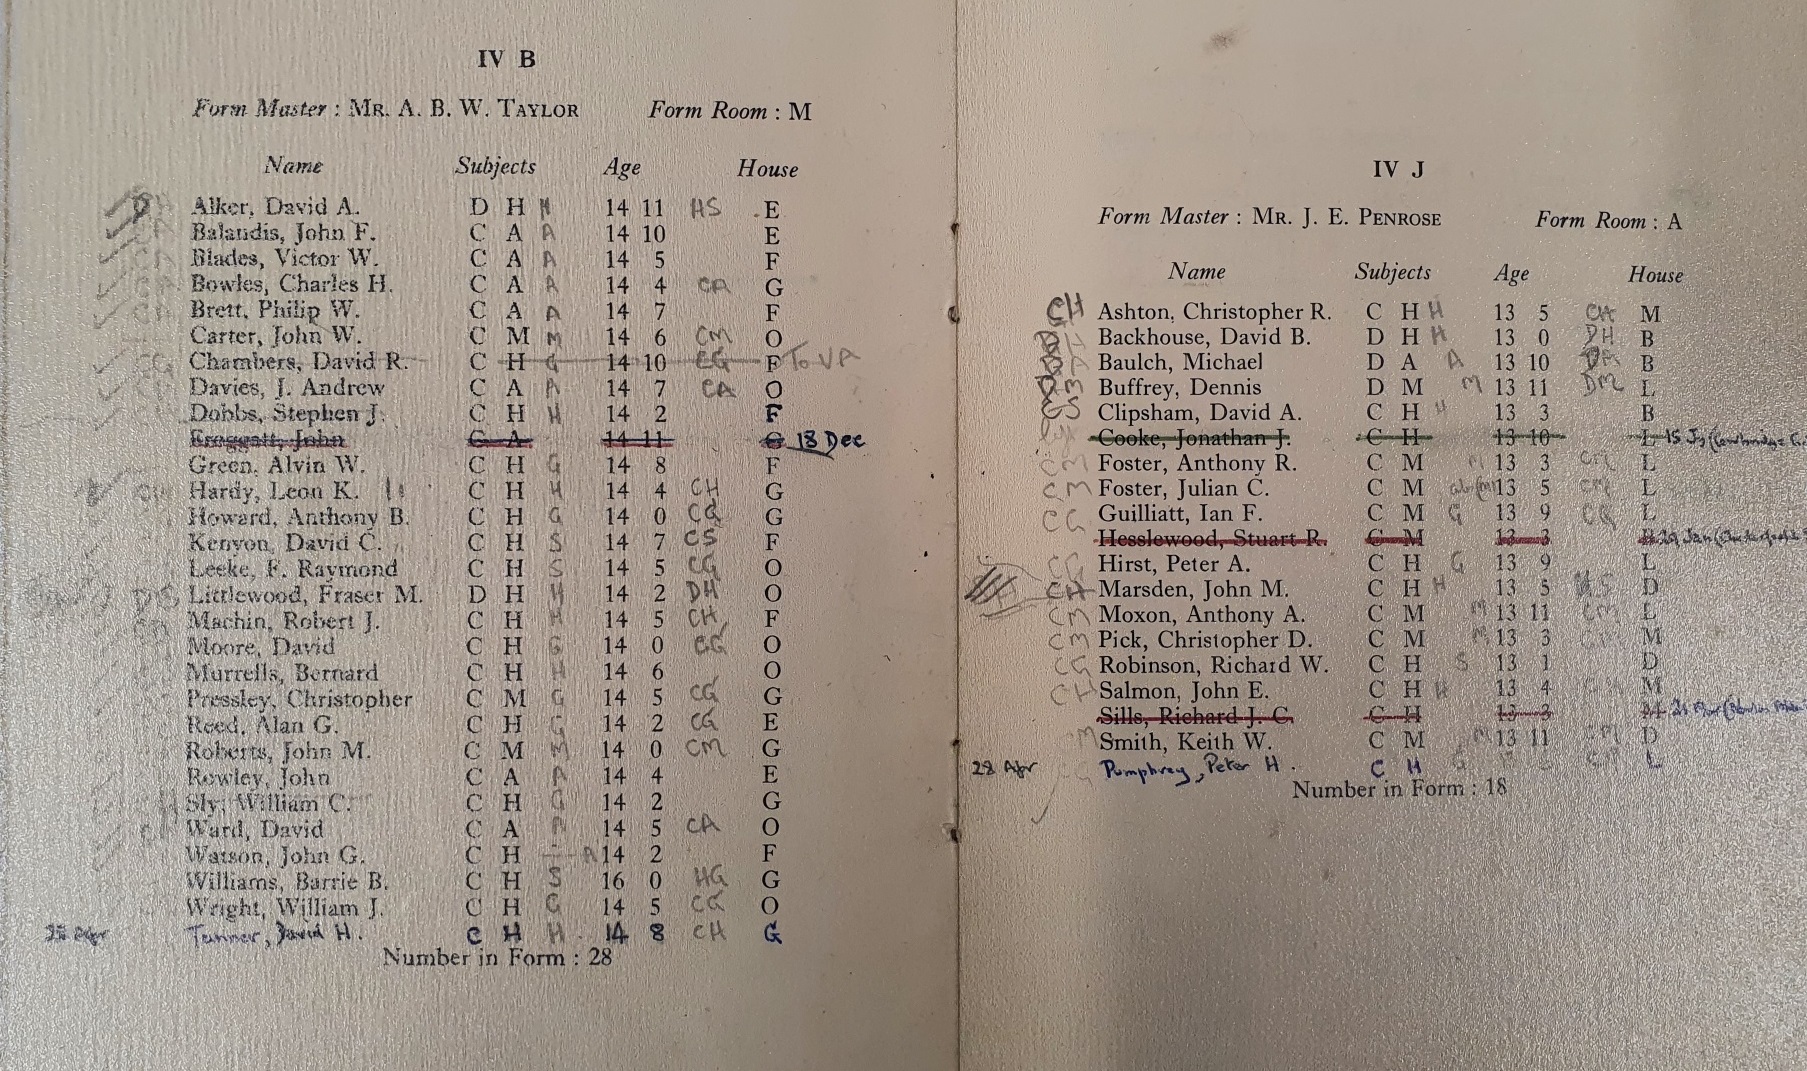 IV B
Form Master : MR. A. B. W. TAYLOR Form Room : M
Name Subjects Age House
Alker, David A. D H H 14 11 HS E
Balaudis, John F. C A A 14 10 E
Blades, Victor W. C A A 14 5 F
Bowles, Charles H. C A A 14 4 CA G
Brett, Philip W. C A A 14 7 F
Carter, John W. C M M 14 6 CM O
Chambers, David R. C H G 14 10 CG F To VA
Davies, J. Andrew C A A 14 7 CA O
Dobbs, Stephen J. C H H 14 2 F
Froggatt, John C A 14 11 G 18 Dec
Green, Alvin W. C H G 14 8 F
Hardy, Leon K. C H H 14 4 CH G
Howard, Anthony B. C H G 14 0 CG G
Kenyon, David C. C H S 14 7 CS F
Leeke, F. Raymond C H S 14 5 CG O
DS Littlewood, Fraser M. D H H 14 2 DH O
Machin, Robert J. C H H 14 5 CH F
Moore, David C H G 14 0 CG O
Murrells, Bernard C H H 14 6 O
Pressley, Christopher C M G 14 5 CG G
Reed, Alan G. C H G 14 2 CG E
Roberts, John M. C M M 14 0 CM G
Rowley, John C A A 14 4 E
Sly, William C. C H G 14 2 G
Ward, David C A A 14 5 CA O
Watson, John G. C H A 14 2 F
Williams, Barrie B. C H S 16 0 HG G
Wright, William J. C H G 14 5 CG O
28 Apr Tanner, David H. C H H 14 8 CH G
Number in Form : 28
IV J
Form Master : MR. J. E. PENROSE Form Room : A
Name Subjects Age House
CH Ashton, Christopher R. C H H 13 5 CH M
Backhouse, David B. D H H 13 0 DH B
Baulch, Michael D A A 13 10 DA B
DM Buffrey, Dennis D M M 13 11 DM L
Clipsham, David A. C H H 13 3 B
Cooke, Jonathan J. C H 13 10 L 15 Jy
CM Foster, Anthony R. C M M 13 3 CM L
CM Foster, Julian C. C M 13 5 CM L
CG Guilliatt, Ian F. C M G 13 9 CG L
Hesslewood, Stuart R. C M 13 3 29 Jan
CG Hirst, Peter A. C H G 13 9 L
CH Marsden, John M. C H H 13 5 D
CM Moxon, Anthony A. C M M 13 11 CM L
CM Pick, Christopher D. C M M 13 3 M
CG Robinson, Richard W. C H S 13 1 D
CH Salmon, John E. C H H 13 4 M
Sills, Richard J. C. C H 13 3 M
Smith, Keith W. C M M 13 11 CM D
28 Apr Pumphrey, Peter H. C H L
Number in Form : 18